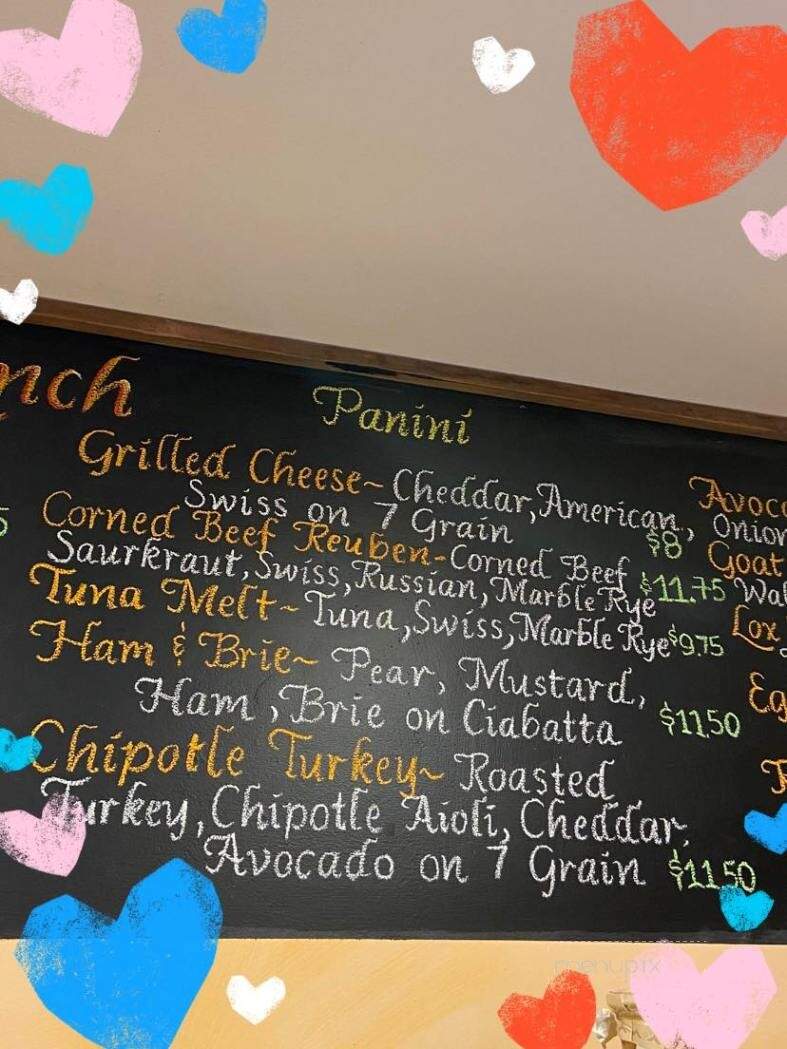 nch
Panini
Grilled Cheese~ Cheddar, American,
Swiss on 7 Grain $8
Corned Beef Reuben~ Corned Beef
Saurkraut, Swiss, Russian, Marble Rye $11.75
Tuna Melt~ Tuna, Swiss, Marble Rye $9.75
Ham & Brie~ Pear, Mustard,
Ham, Brie on Ciabatta $11.50
Chipotle Turkey~ Roasted
Turkey, Chipotle Aioli, Cheddar,
Avocado on 7 Grain $11.50
5
Avoc
Onion
Goat
Wal
Lox
Eg
menupix